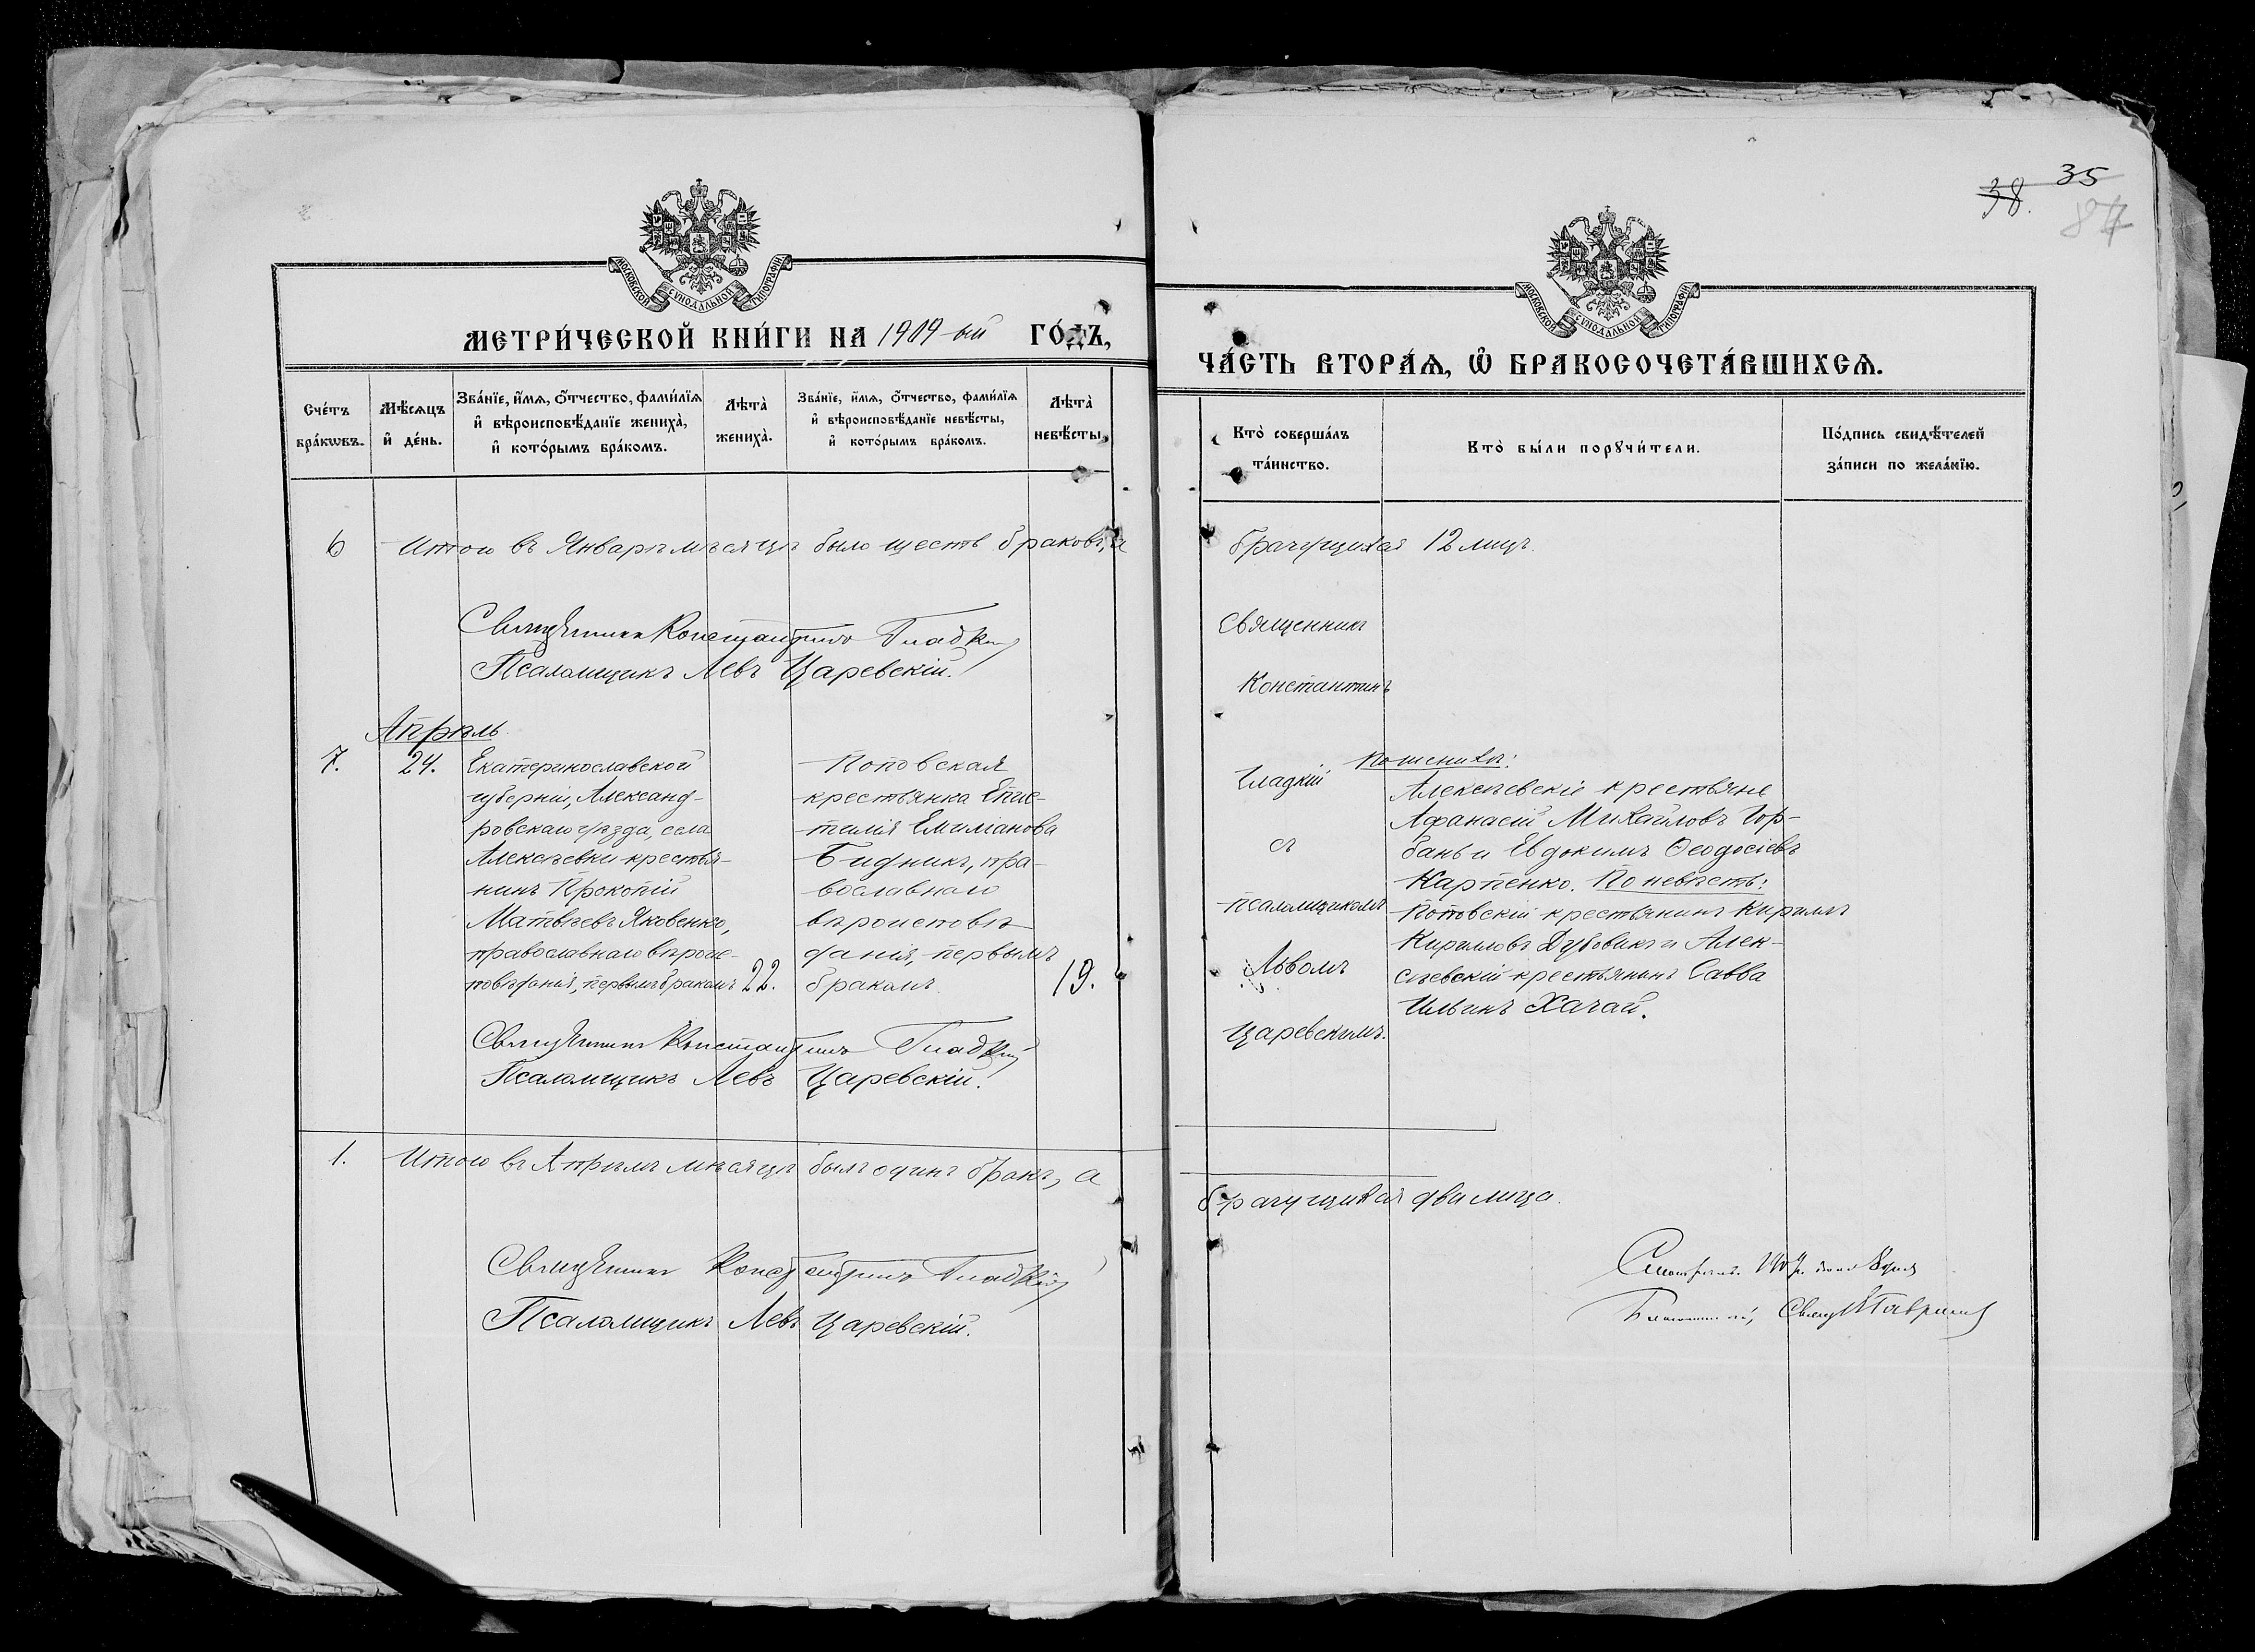 35
38.
87
МОСКОВСКОЙ СѴНОДАЛЬНОЙ ТИПОГРАФІИ
МЕТРИ́ЧЕСКОЙ КНИ́ГИ НА 1909-ый ГО́ДЪ,
Сче́тъ бра́кѡвъ.
Мѣ́сяцъ и҆ де́нь.
Зва́нїе, и҆́мѧ, ѻ҆́тчество, фами́лїѧ и҆ вѣроисповѣ́данїе жениха̀, и҆ кото́рымъ бра́комъ.
Лѣта̀ жениха̀.
Зва́нїе, и҆́мѧ, ѻ҆́тчество, фами́лїѧ и҆ вѣроисповѣ́данїе невѣ́сты, и҆ кото́рымъ бра́комъ.
Лѣта̀ невѣ́сты.
6 Итого въ Январѣ мѣсяцѣ было шесть браковъ, а
Священникъ Константинъ Гладкій
Псаломщикъ Левъ Царевскій.
Апрѣль
7. 24.
Екатеринославской
губерніи, Александ-
ровскаго уѣзда, села
Алексѣевки крестья-
нинъ Прокопій
Матвѣевъ Яковенко,
православнаго вѣроис-
повѣданія, первымъ бракомъ
22.
Поповская
крестьянка Епис-
тилія Емиліанова
Бидникъ, пра-
вославнаго
вѣроисповѣ-
данія, первымъ
бракомъ
19.
Священникъ Константинъ Гладкій
Псаломщикъ Левъ Царевскій.
1. Итого въ Апрѣлѣ мѣсяцѣ былъ одинъ бракъ, а
Священникъ Константинъ Гладкій
Псаломщикъ Левъ Царевскій.
МОСКОВСКОЙ СѴНОДАЛЬНОЙ ТИПОГРАФІИ
ЧА́СТЬ ВТОРА́Ѧ, Ѡ҆ БРАКОСОЧЕТА́ВШИХСѦ.
Кто̀ соверша́лъ та́инство.
Кто̀ бы́ли порꙋчи́тели.
По́дпись свидѣ́телей за́писи по жела́нїю.
брачущихся 12 лицъ.
Священникъ
Константинъ
Гладкій
съ
псаломщикомъ
Львомъ
Царевскимъ.
По женихѣ:
Алексѣевскіе крестьяне
Афанасій Михайловъ Гор-
бань и Евдокимъ Ѳеодосіевъ
Карпенко. По невѣстѣ:
Поповскій крестьянинъ Кириллъ
Кирилловъ Дубовикъ и Алек-
сѣевскій крестьянинъ Савва
Ильинъ Хачай.
брачущихся два лица.
Смотрѣлъ
Благочинный, Свящ. Гаврилов